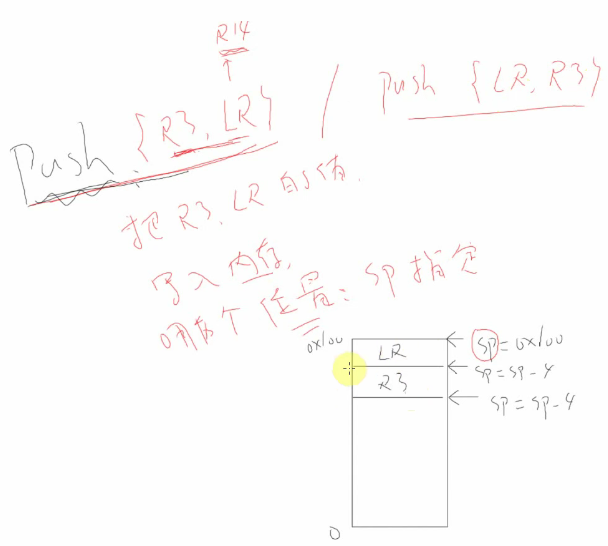 R14
Push {R3, LR} / Push {LR, R3}
把 R3, LR 的值,
写入内存,
哪个位置: SP 指定
0x100 SP=0x100
LR
SP=SP-4
R3
SP=SP-4
0